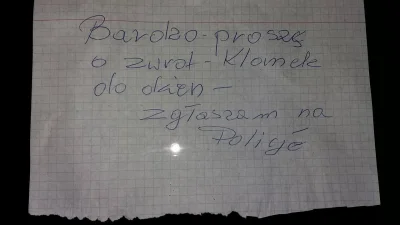 Bardzo proszę
o zwrot - Klamek
do dzien -
zgłaszam na
Policję